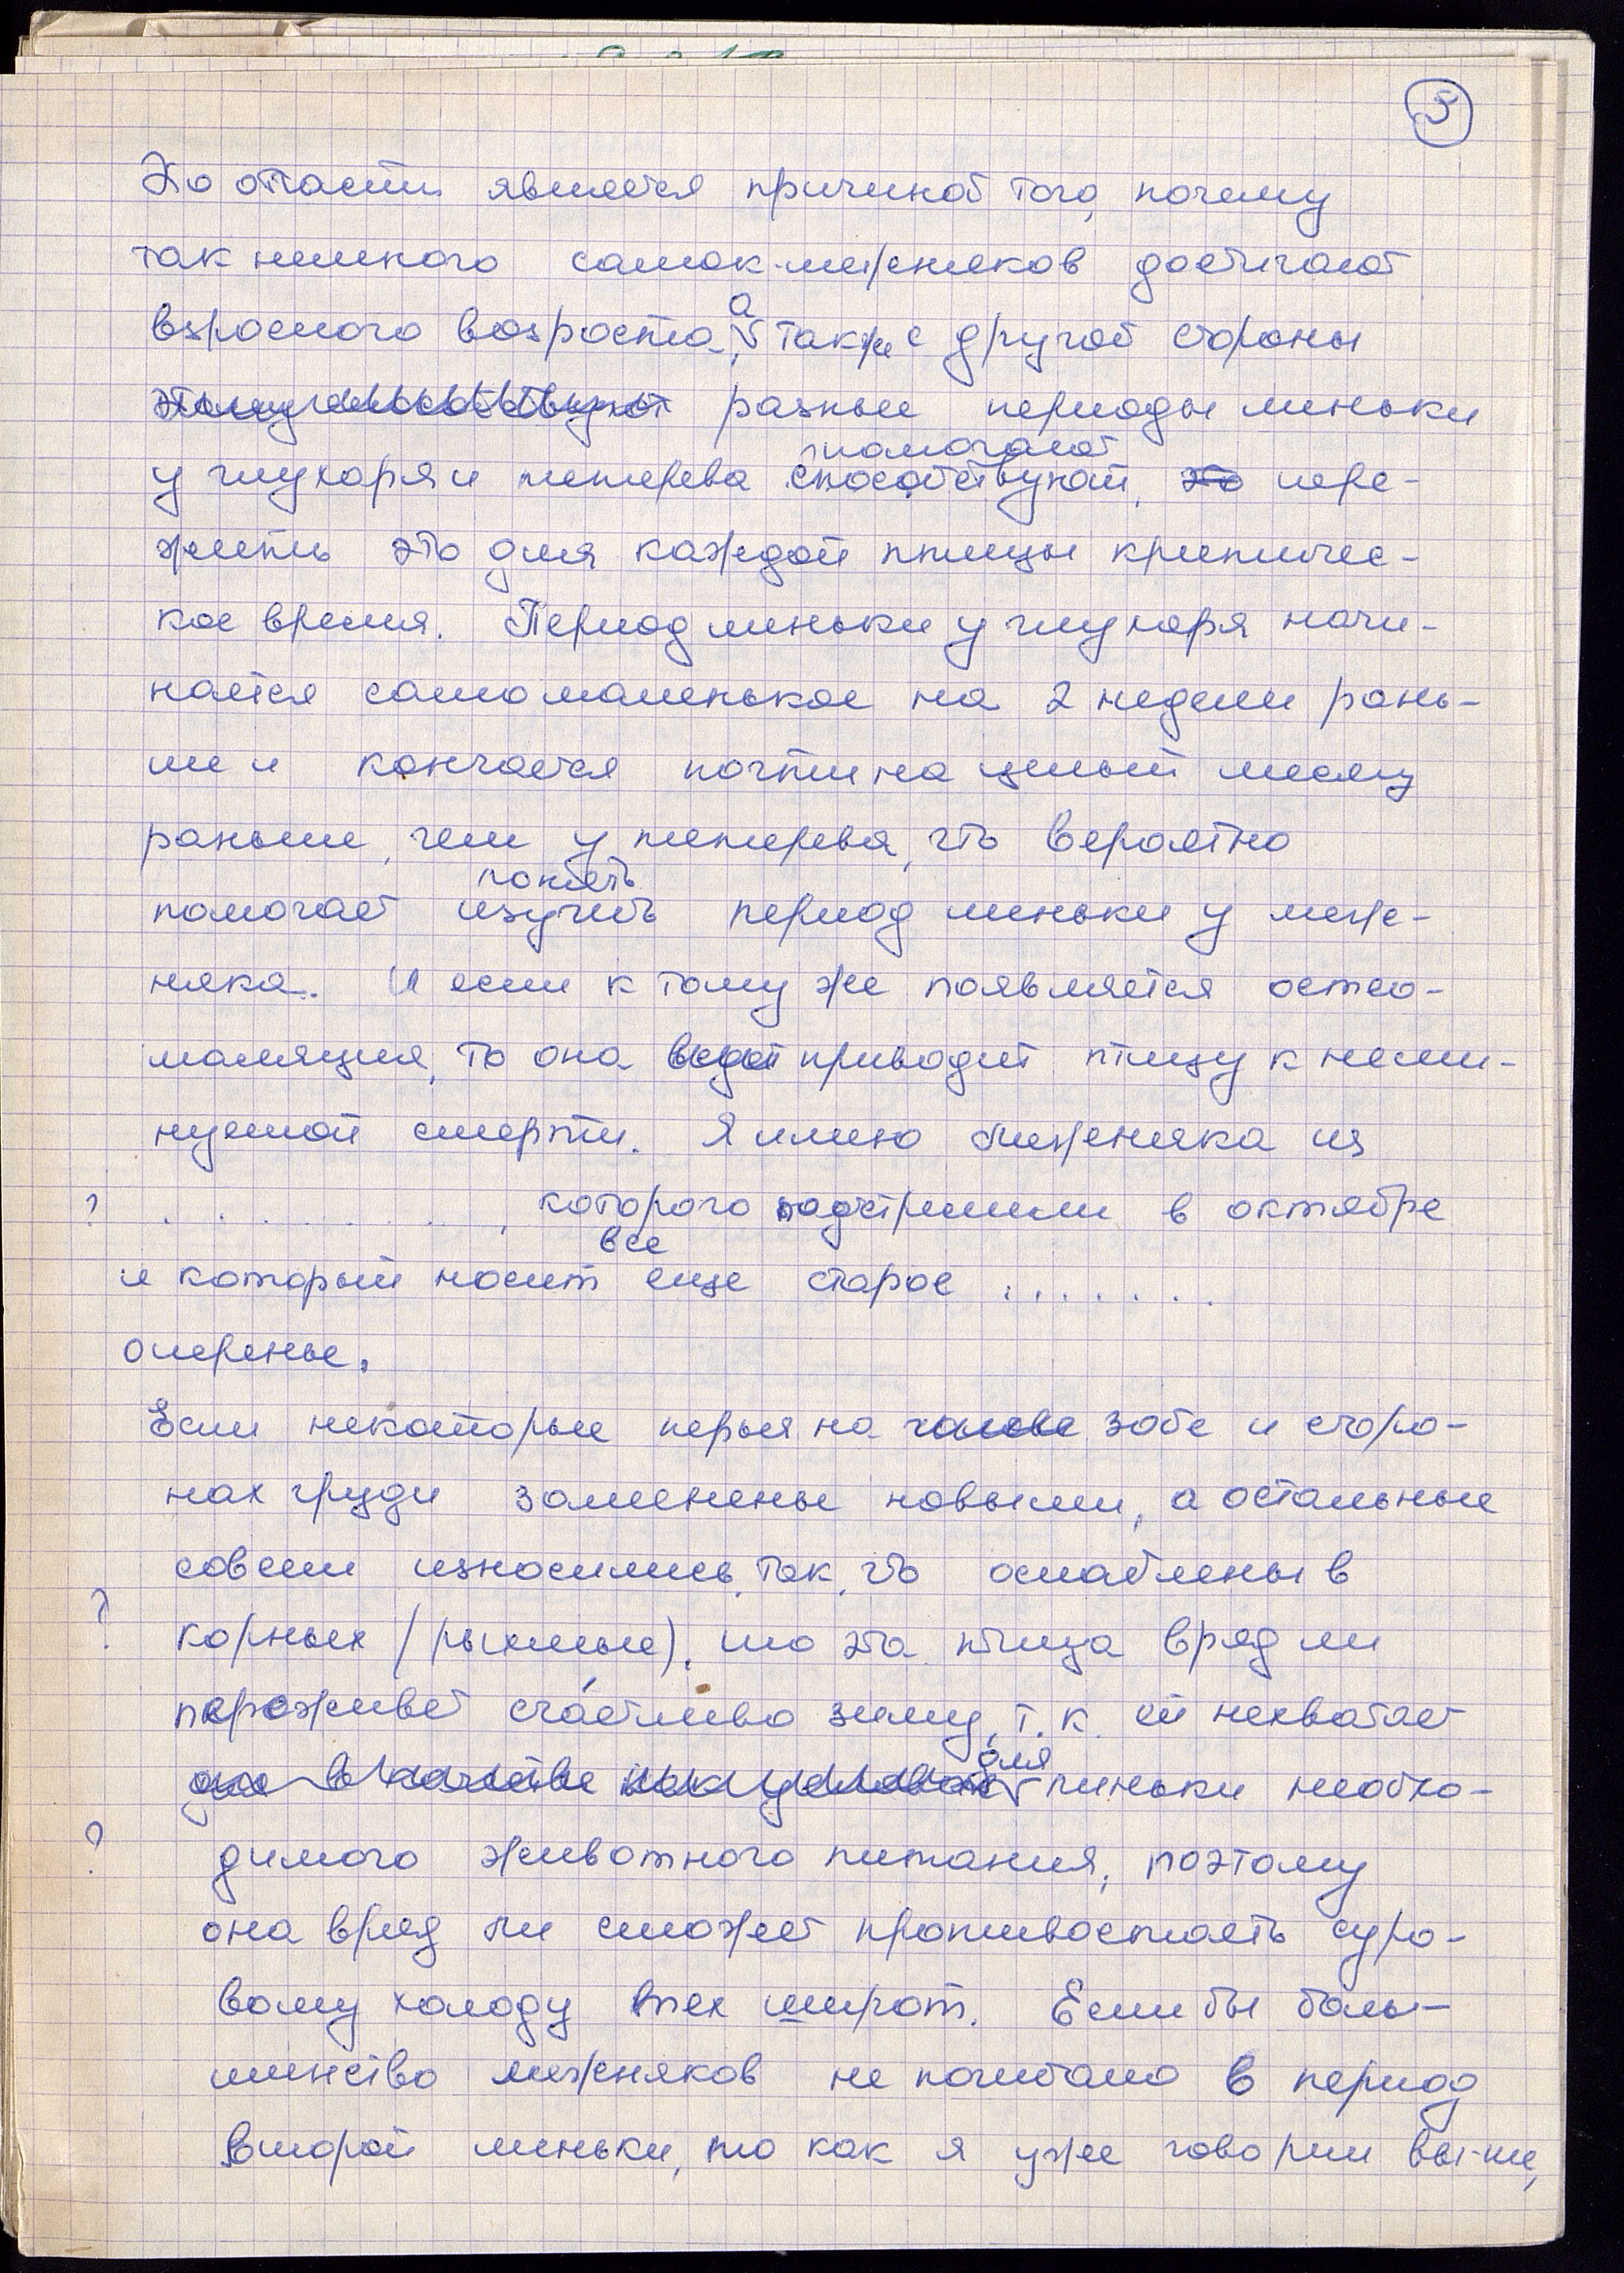 5
Это отасти является причиной того, почему
так немного самок-межняков достигают
взрослого возраста, а также с другой стороны
этому способствуют разные периоды линьки
помогают
у глухаря и тетерева способствуют, это пере-
жить это для каждой птицы критичес-
кое время. Период линьки у глухаря начи-
нается само маленькое на 2 недели рань-
ше и кончается почти на целый месяц
раньше, чем у тетерева, что вероятно
понять
помогает изучить период линьки у меж-
няка. И если к тому же появляется остео-
маляция, то она приводит птицу к неми-
нуемой смерти. Я имею межняка из
? . . . . . . . . . . , которого подстрелили в октябре
все
и который носит еще старое . . . . . . .
оперенье.
Если некоторые перья на голове зобе и сторо-
нах груди замененые новыми, а остальные
совсем износились, так, что ослаблены в
? корнях (рыхлые), то эта птица вряд ли
переживет счастливо зиму, т. к. ей нехватает
для
в качестве линьки необхо-
? димого животного питания, поэтому
она вряд ли сможет противостоять суро-
вому холоду тех широт. Если бы боль-
шинство межняков не погибало в период
второй линьки, то как я уже говорил выше,